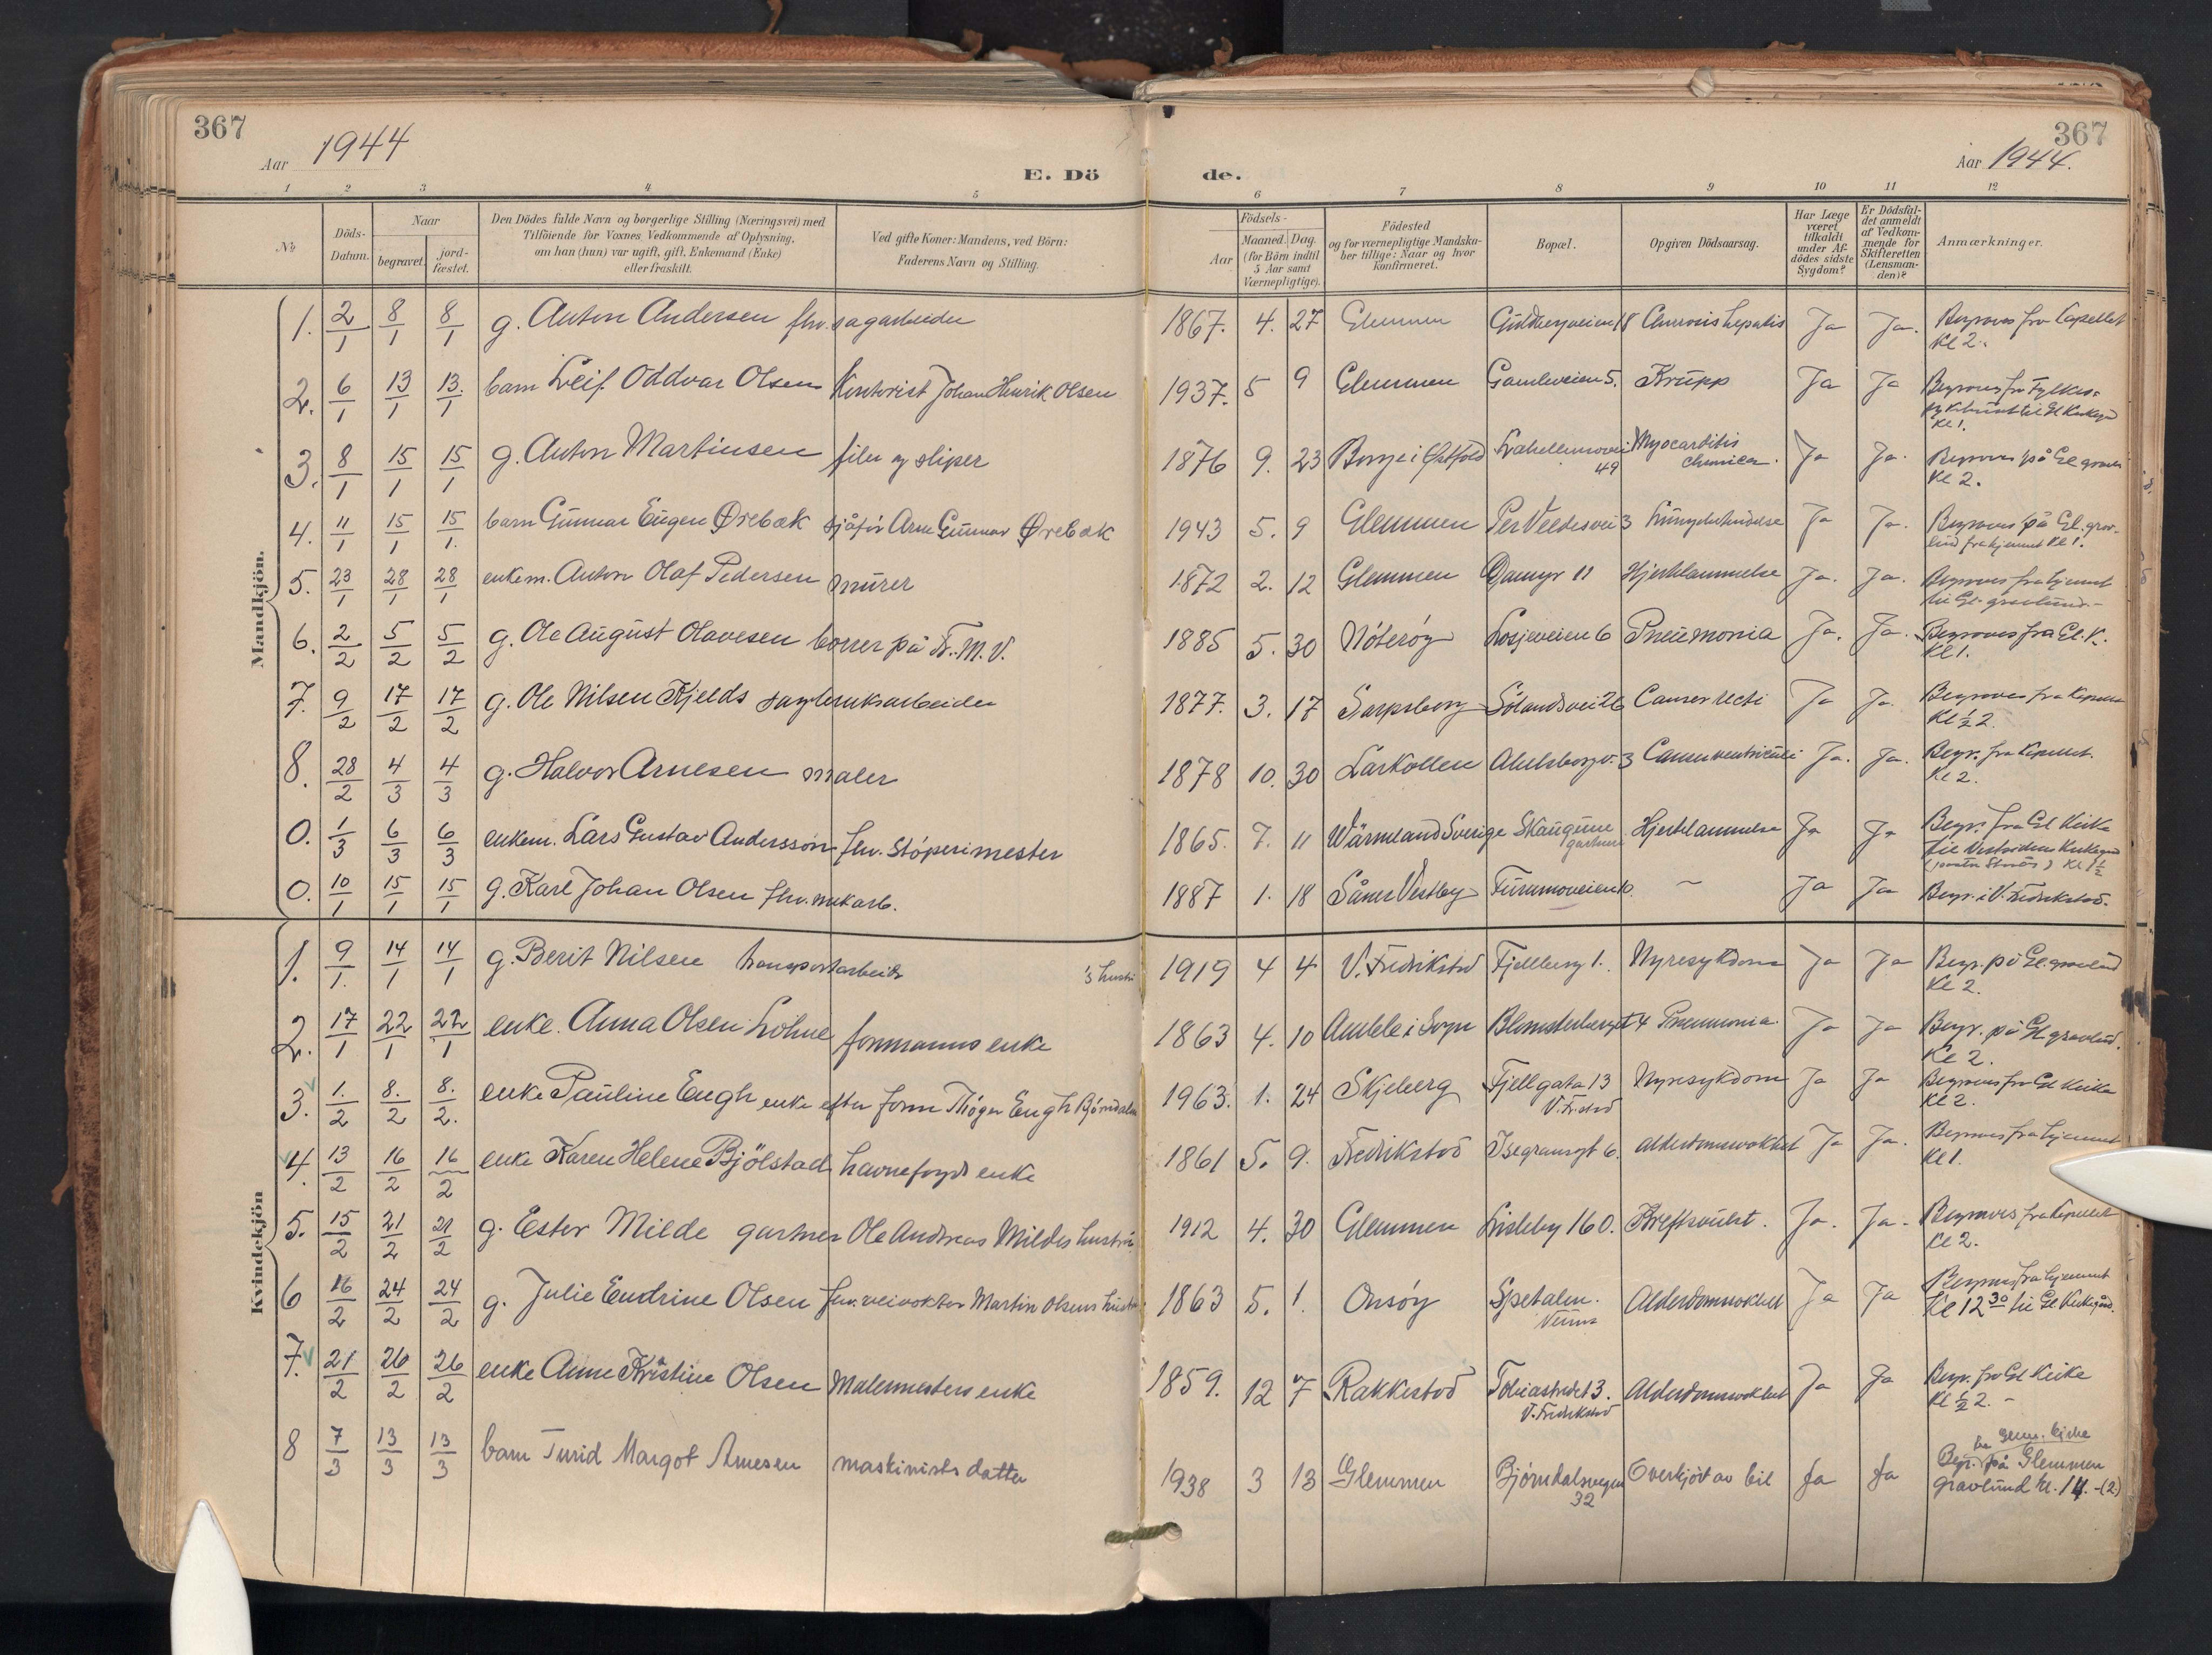 367
Aar 1944
E. Dö
1 2 3 4 5
№
Döds-
Datum.
Naar
begravet.
jord-
fæstet.
Den Dödes fulde Navn og borgerlige Stilling (Næringsvei) med
Tilföiende for Voxnes Vedkommende af Oplysning,
om han (hun) var ugift, gift, Enkemand (Enke)
eller fraskilt.
Ved gifte Koner: Mandens, ved Börn:
Faderens Navn og Stilling.
367
Aar 1944.
de.
6 7 8 9 10 11 12
Aar
Födsels-
Maaned. Dag.
(for Börn indtil
5 Aar samt
Værnepligtige).
Födested
og for værnepligtige Mandska-
ber tillige: Naar og hvor
konfirmeret.
Bopæl.
Opgiven Dödsaarsag.
Har Læge
været
tilkaldt
under Af-
dödes sidste
Sygdom?
Er Dödsfal-
det anmeldt
af Vedkom-
mende for
Skifteretten
(Lensman-
den)?
Anmærkninger.
Mandkjön.
1. 2/1 8/1 8/1 g. Anton Andersen fhv. sagarbeider 1867. 4. 27 Glemmen Guldbergveien 18 Cirrosis hepatis Ja Ja. Begraves fra Capellet
Kl 2.
2. 6/1 13/1 13./1 barn Leif Oddvar Olsen Kontorist Johan Henrik Olsen 1937. 5 9 Glemmen Gamleveien 5. Krupp Ja Ja Begraves fra Fylkes-
sykehuset til Gl Kirkegd
Kl 1.
3. 8/1 15/1 15/1 g. Anton Martinsen filer og sliper 1876 9. 23 Borge i Østfold 49 Myocarditis
chronica. Ja Ja. Begraves på Gl gravl.
Kl 2.
4. 11/1 15/1 15/1. barn Gunnar Eugen Ørebæk sjåfør Arne Gunnar Ørebæk 1943 5. 9 Glemmen Per Veedesvei 3 Lungebetendelse Ja Ja. Begraves på Gl. grav-
lund fra hjemmet Kl 1.
5. 23/1 28/1 28/1 enkem. Anton Olaf Pedersen murer 1872 2. 12 Glemmen Damyr 11 Hjertelammelse Ja. Ja. Begraves fra hjemmet
til Gl. gravlund.-
6. 2/2 5/2 5/2 g. Ole August Olavesen borer på Fr. M. V. 1885 5. 30 Nøterøy Losjeveien 6 Pneumonia Ja. Ja. Begraves fra Gl. K.
Kl 1.
7. 9/2 17/2 17/2 g. Ole Nilsen Kjelds sagbruksarbeider 1877. 3. 17 Sarpsborg Sølandsvei 26 Cancer recti Ja Ja. Begraves fra Kapellet
Kl ½ 2.
8. 28/2 4/3 4/3 g. Halvor Arnesen maler 1878 10. 30 Larkollen 3 Cancer ventriculi Ja. Ja. Begr. fra Kapellet.
Kl 2.
0. 1/3 6/3 6/3 enkem. Lars Gustav Andersson fhv. støperimester 1865. 7. 11 Wärmeland Sverige Skaugune
gartneri Hjertelammelse Ja Ja Begr. fra Gl Kirke
til Vestsidens Kirkegd
Kl 1½
0. 10/1 15/1 15/1 g. Karl Johan Olsen fhv. mek arb. 1887 1. 18 Såner Vestby Furumoveien 10. ~ Ja Ja Begr. i V. Fredrikstad.
Kvindekjön
1. 9/1. 14/1 14/1 g. Berit Nilsen transportarbeider 's hustru 1919 4 4 V. Fredrikstad Fjellberg 1. Nyresykdom Ja Ja Begr. på Gl. gravlund
Kl 2.
2. 17/1 22/1 22/1 enke. Anna Olsen Lohne formanns enke 1863 4. 10 Amble i Sogn Blomsterberget 4 Pneumonia. Ja Ja Begr. på Gl gravlund.
Kl 2.
3. 1./2 8./2 8./2. enke Pauline Engh enke efter form Thøger Engh Bjørndalen 1963. 1. 24 Skjeberg Fjellgata 13
V. Fr.stad Nyresykdom Ja Ja Begraves fra Gl Kirke
Kl 2.
4. 13/2 16/2 16/2 enke Karen Helene Bjölstad havnefogds enke 1861 5. 9. Fredrikstad Isegransgt 6. Alderdomssvakhet Ja Ja. Begraves fra hjemmet
Kl 1.
5. 15/2 21/2 21/2 g. Ester Milde gartner Ole Andreas Mildes hustru. 1912 4. 30 Glemmen Lisleby 160. Kreftsvulst. Ja. Ja. Begraves fra Kapellet
Kl 2.
6 16/2 24/2 24/2 g. Julie Endrine Olsen fhv. veivokter Martin Olsens hustru 1863 5. 1. Onsøy Spetalen. Alderdomssvakhet Ja Ja Begraves fra hjemmet
Kl 12 30 til Gl Kirkegård.
7. 21/2 26/2 26/2 enke Anne Kristine Olsen Malermesters enke 1859. 12 7 Rakkestad Tobiastredet 3.
V. Fredrikstad Alderdomssvakhet Ja Ja Begr. fra Gl Kirke
Kl ½ 2. -
8 7/3 13/3 13/3 barn Turid Margot Arnesen maskinists datter 1938 3 13 Glemmen Bjørndalsvegen
32 Overkjørt av bil Ja Ja fra Glem. kirke
Begr. på Glemmen
gravlund kl. 14. -(2)